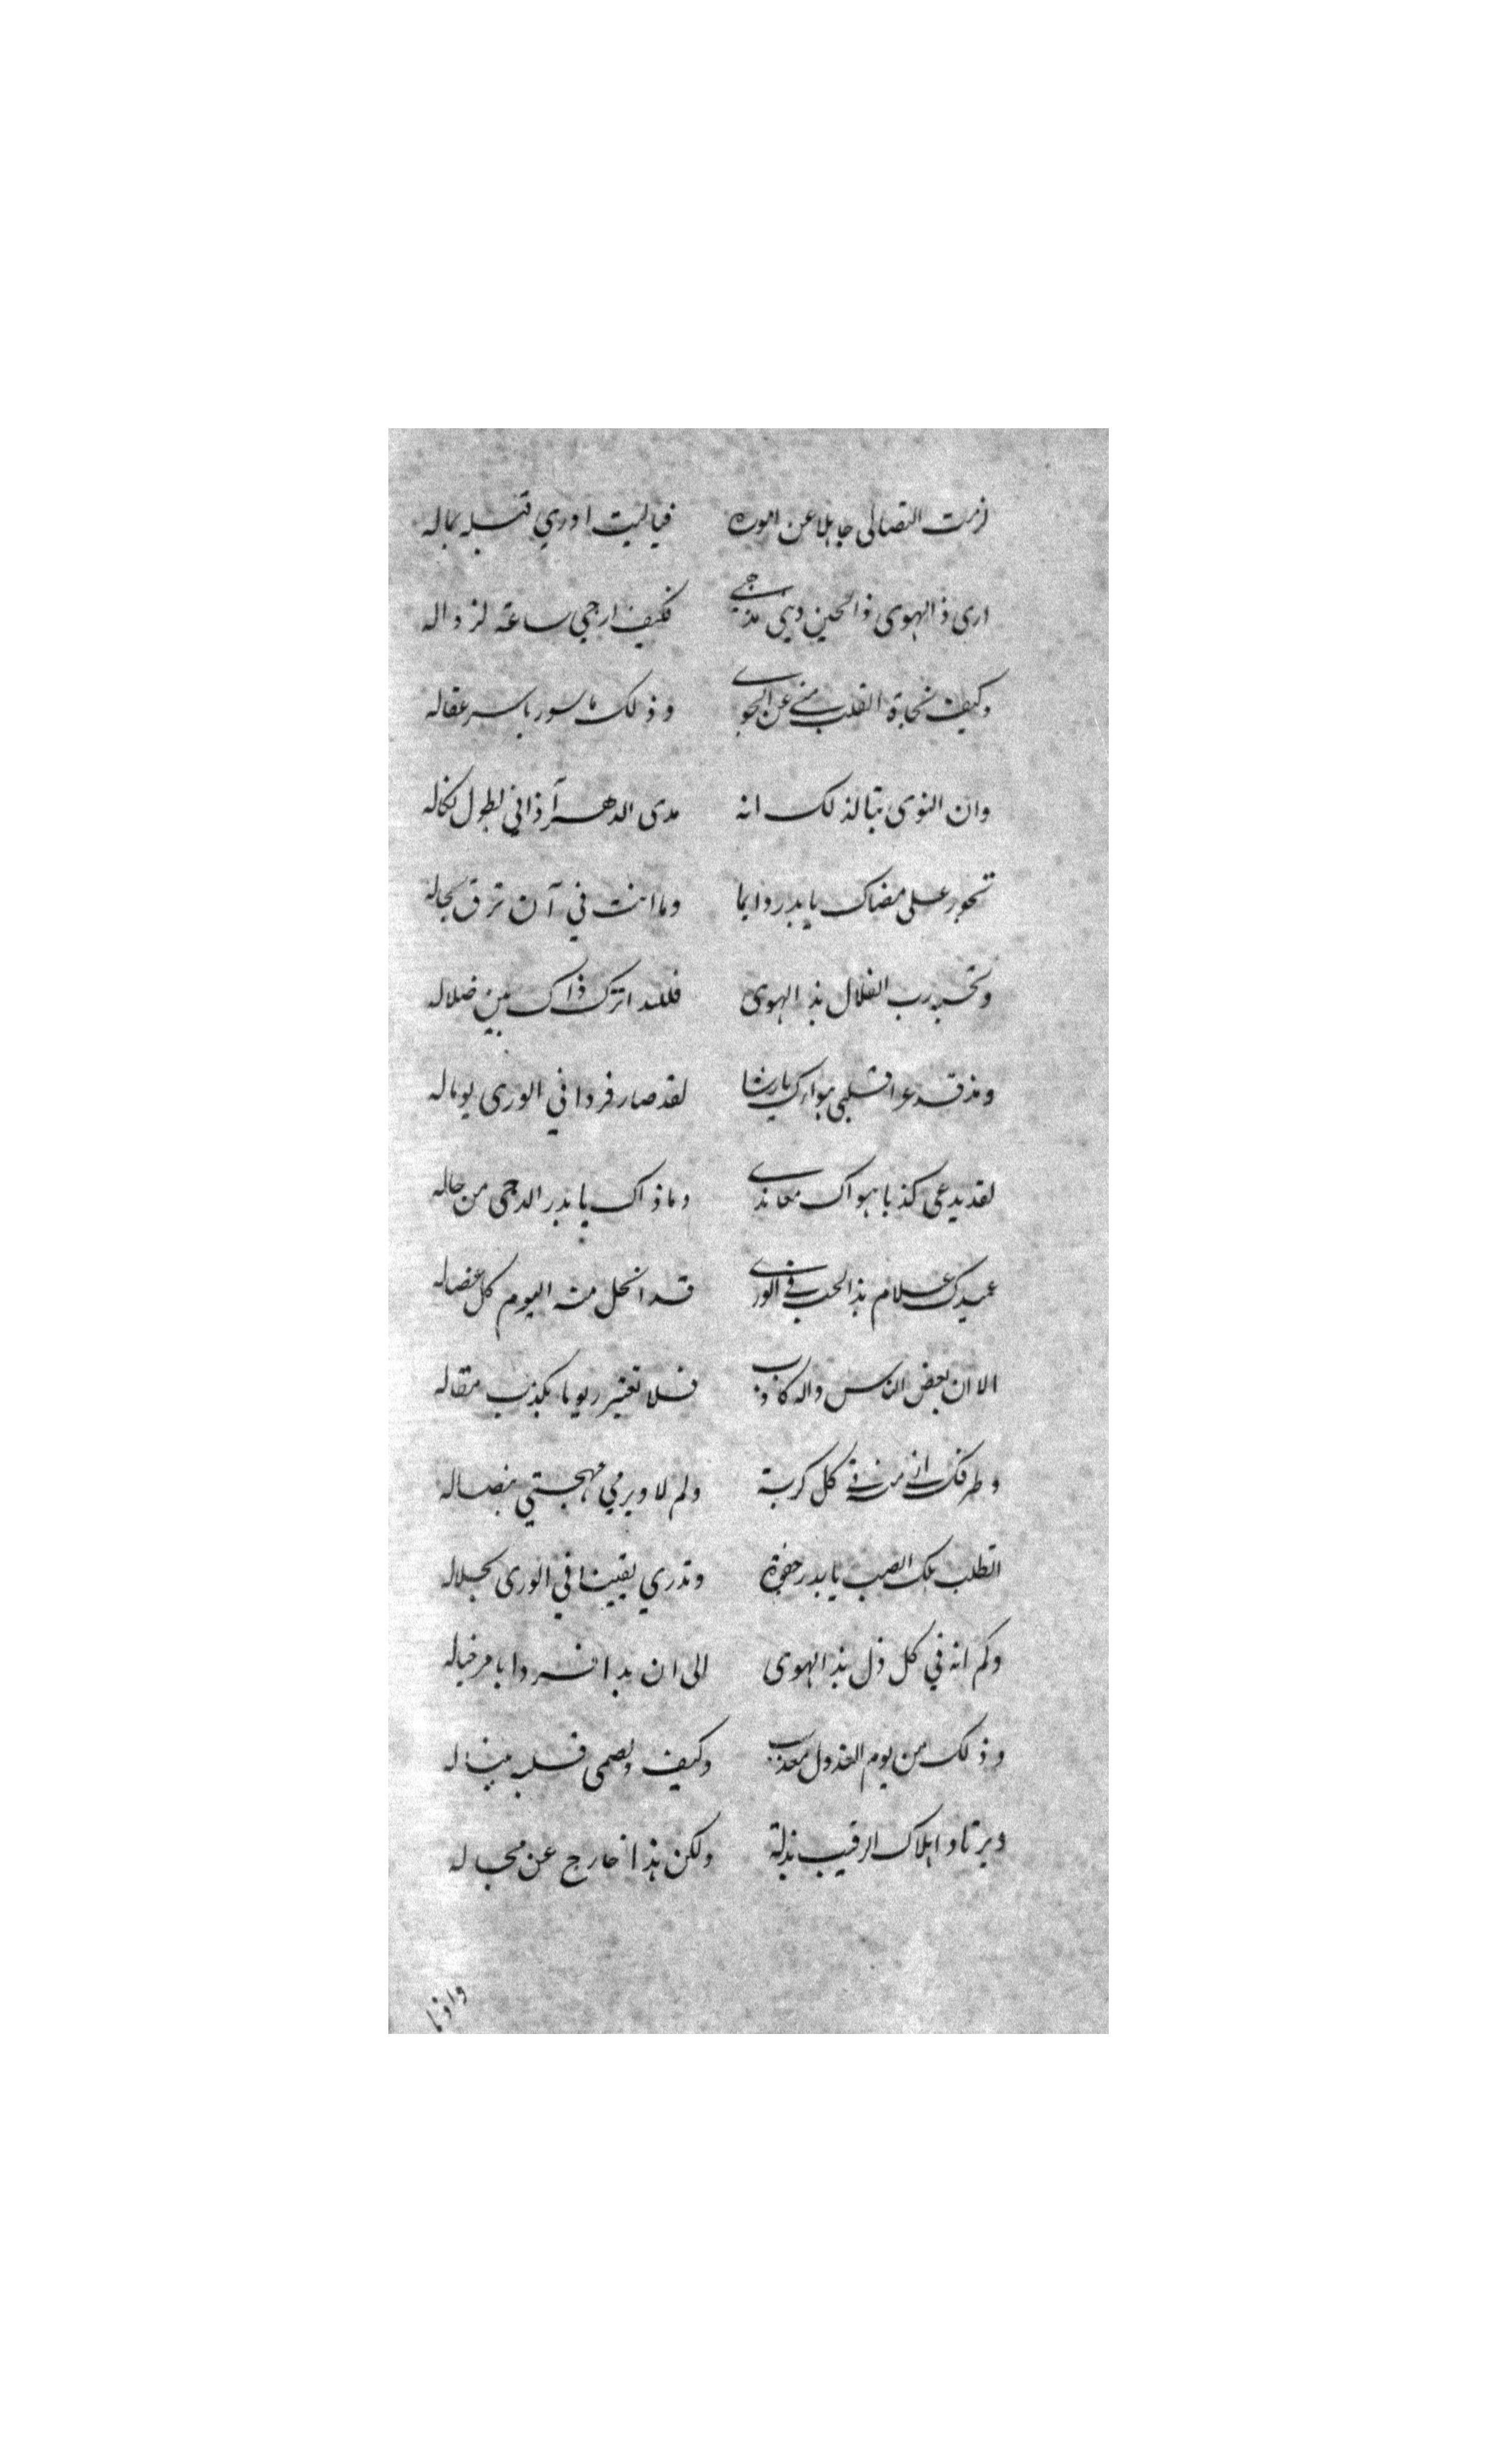 لزمت التصابى جاهلا عن اموره فياليت ادري قبله بماله
ارى ذا الهوى فى الحين دينى مذهبي فكيف ارجي ساعة لزواله
وكيف نجاة القلب مني عن الجوي وذلك ماسور باسر عقاله
وان النوى تبا لذلك انه مدى الدهر آذاني لطول نكاله
تجور على مضناك يا بدر دايما وما انت في آن ترق لحاله
وتحسبه رب الضلال بذا الهوى فلله اترك ذاك بين ضلاله
ومذ قد عرا قلبي هواك يا رشا لقد صار فردا في الورى يوماله
لقد يدعى كذبا هواك معاندي وما ذاك يا بدر الدجى من رجاله
عبيدك علام بذا الحب في الورى قد انحل منه اليوم كل عضاله
الا ان بعض الناس واله كاذب فلا تغتر يوما بكذب مقاله
وطرفك اني منه في كل كربة ولم لا ويرمي مهجتي بنصاله
اتطلب هلك الصب يا بدر جفوة وتدري يقينا في الورى بجلاله
وكم انه في كل ذل بذا الهوى الى ان بدا فردا بامر خياله
وذلك من يوم العذول معذب وكيف ويصمى قلبه بنباله
ويرتاد اهلاك الرقيب بذلة ولكن هذا خارج عن مجاله